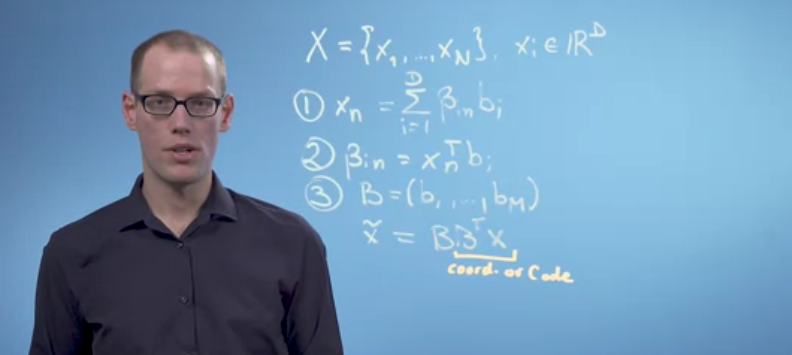 X = {x₁, ..., x_N}, xᵢ ∈ ℝᴰ
① xₙ = Σᵢ₌₁ᴰ βᵢₙ bᵢ
② βᵢₙ = xₙᵀ bᵢ
③ B = (b₁, ..., b_M)
x̃ = BBᵀx
coord. or Code